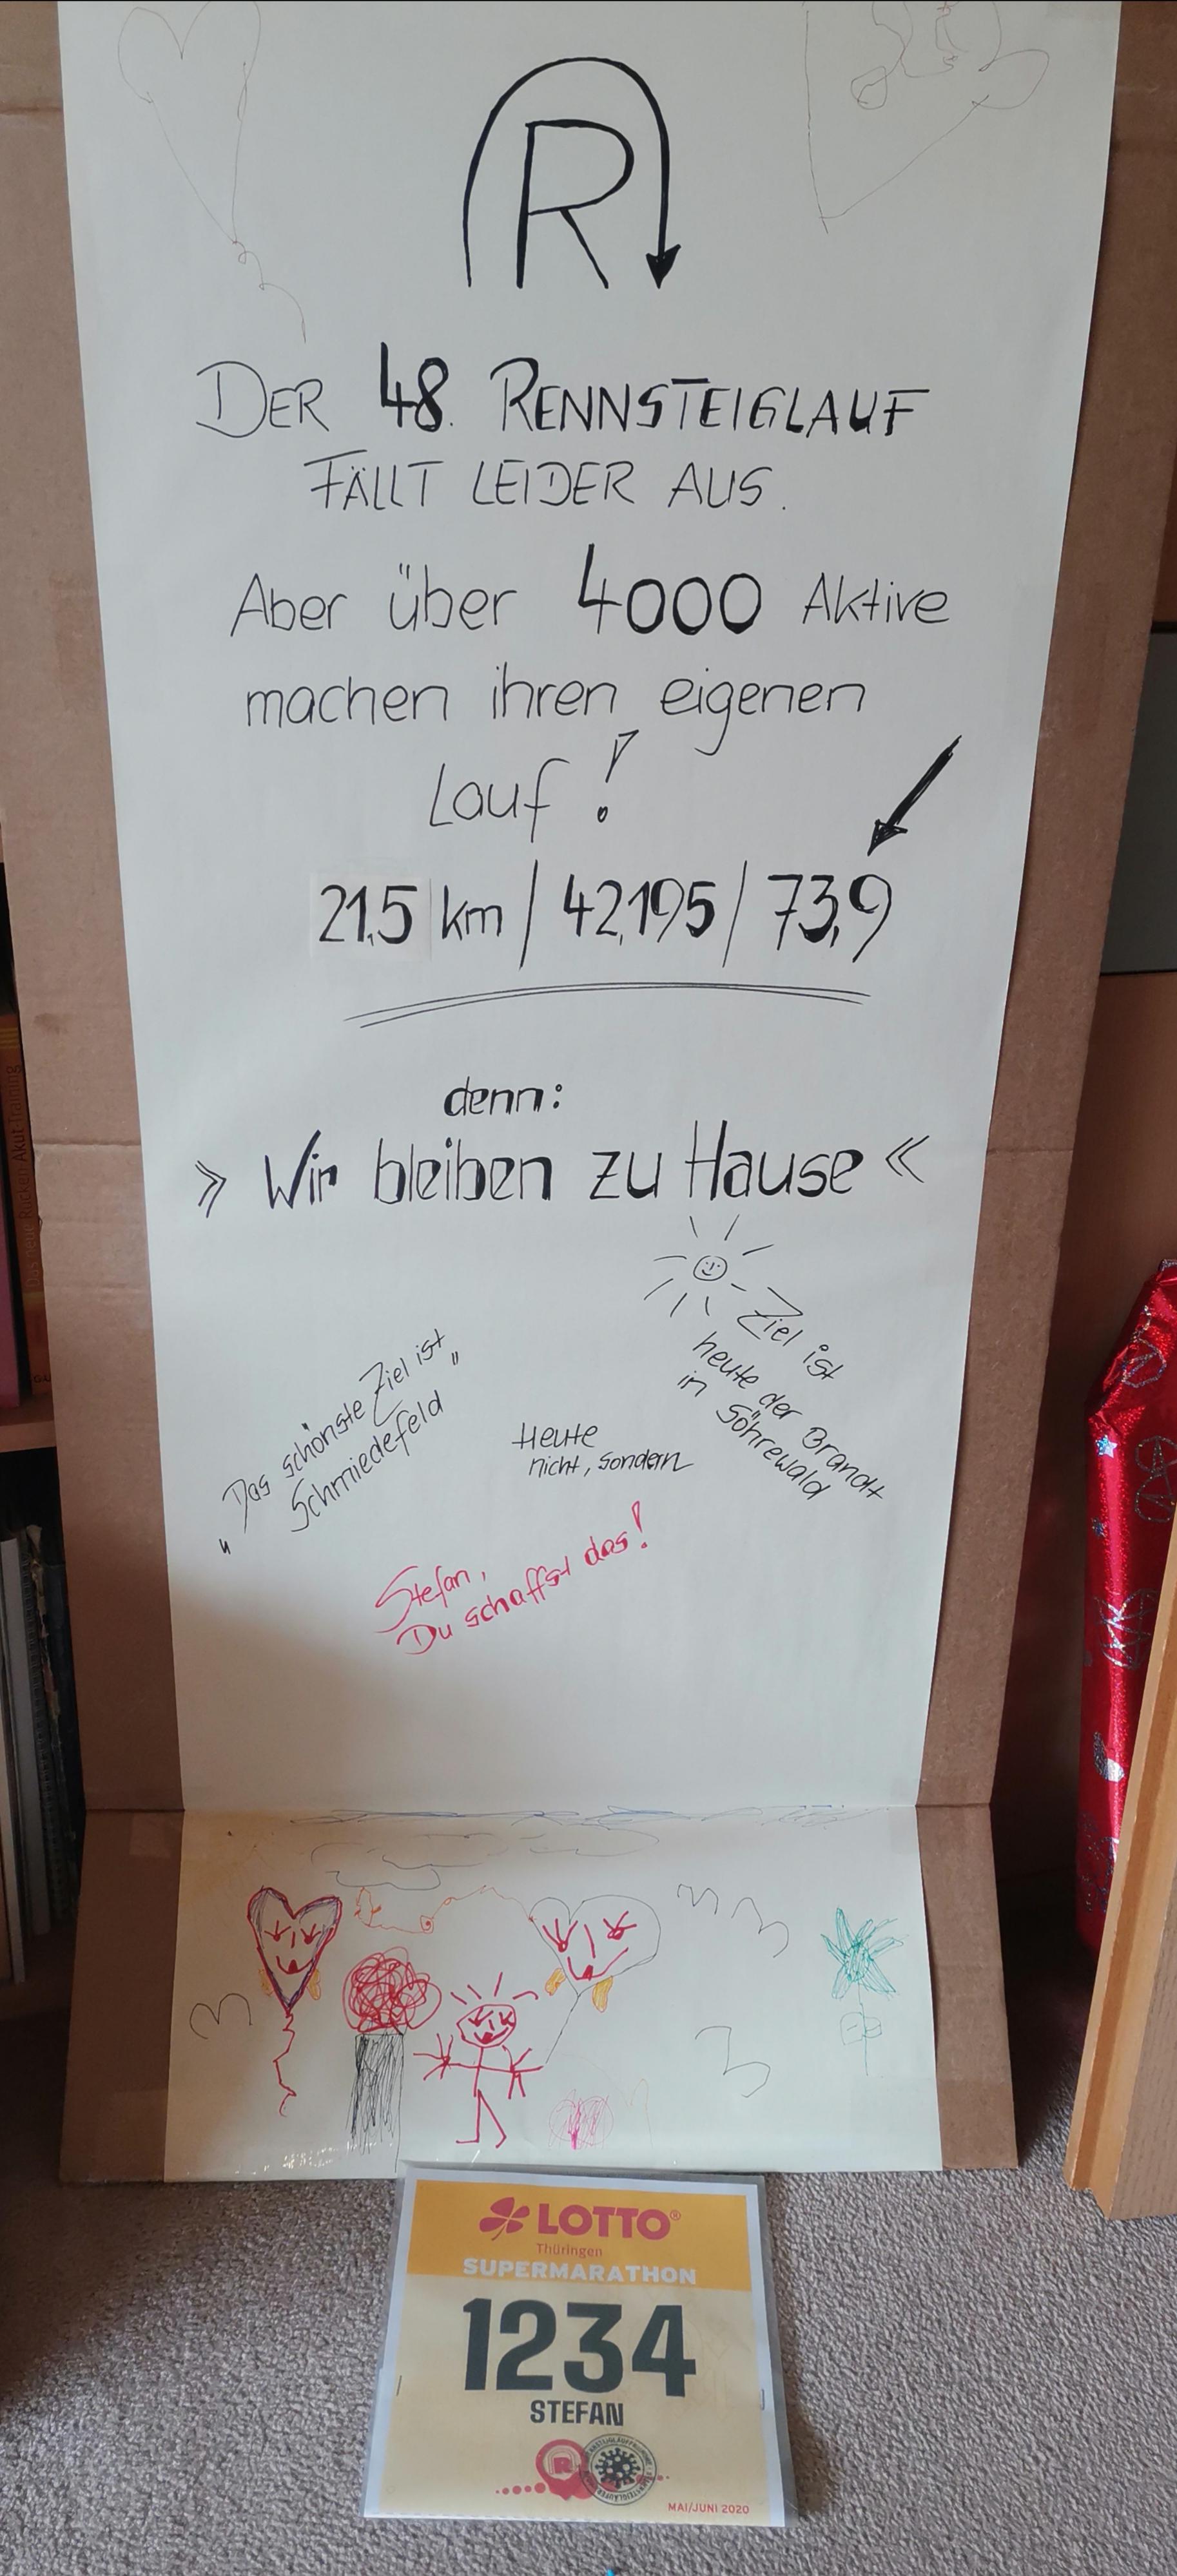 R
DER 48. RENNSTEIGLAUF
FÄLLT LEIDER AUS.
Aber über 4000 Aktive
machen ihren eigenen
Lauf!
21,5 km / 42,195 / 73,9
denn:
» Wir bleiben zu Hause «
„Das schönste Ziel ist
Schmiedefeld"
Heute
nicht, sondern
Ziel ist
heute der Brandt
in Söhrewald
Stefan,
Du schaffst das!
LOTTO®
Thüringen
SUPERMARATHON
1234
STEFAN
R
MAI/JUNI 2020
Das neue Rücken Akut-Training